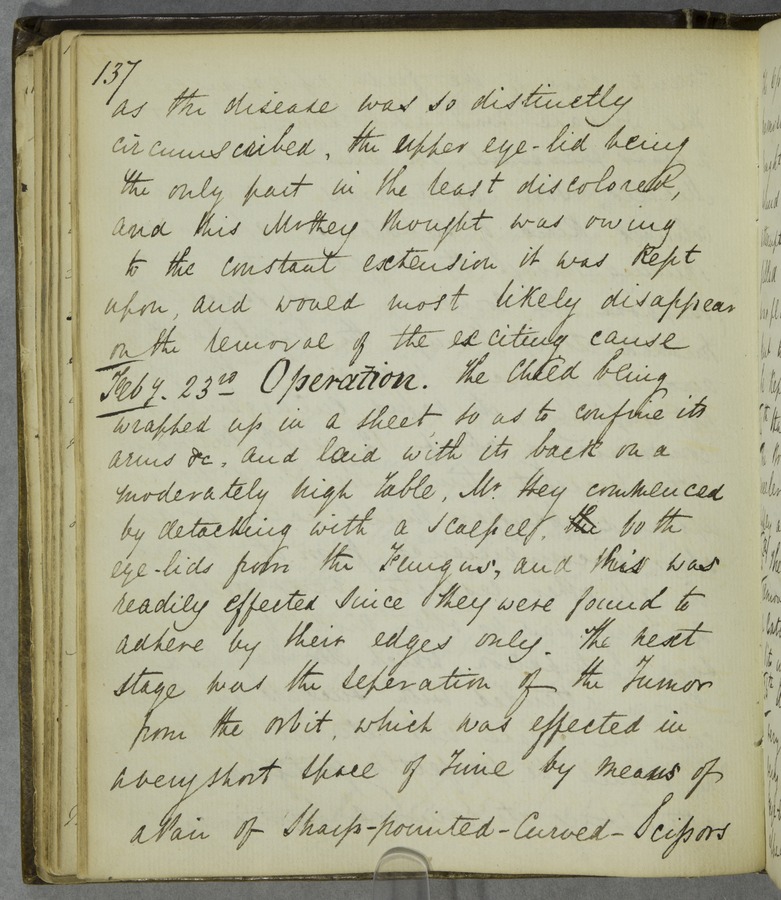 137
as the disease was so distinctly
circumscribed, the upper eye-lid being
the only part in the least discolored,
and this Mr Hey thought was owing
to the constant extension it was kept
upon, and would most likely disappear
on the removal of the exciting cause
Feby. 23rd Operation. The Child being
wrapped up in a sheet, so as to confine its
arms &c, and laid with its back on a
moderately high table, Mr. Hey commenced
by detaching with a Scalpel, the both
eye-lids from the Fungus, and this was
readily effected since they were found to
adhere by their edges only. The next
stage was the seperation of the Tumor
from the orbit, which was effected in
a very short space of Time by means of
a Pair of Sharp-pointed-Curved-Scissors